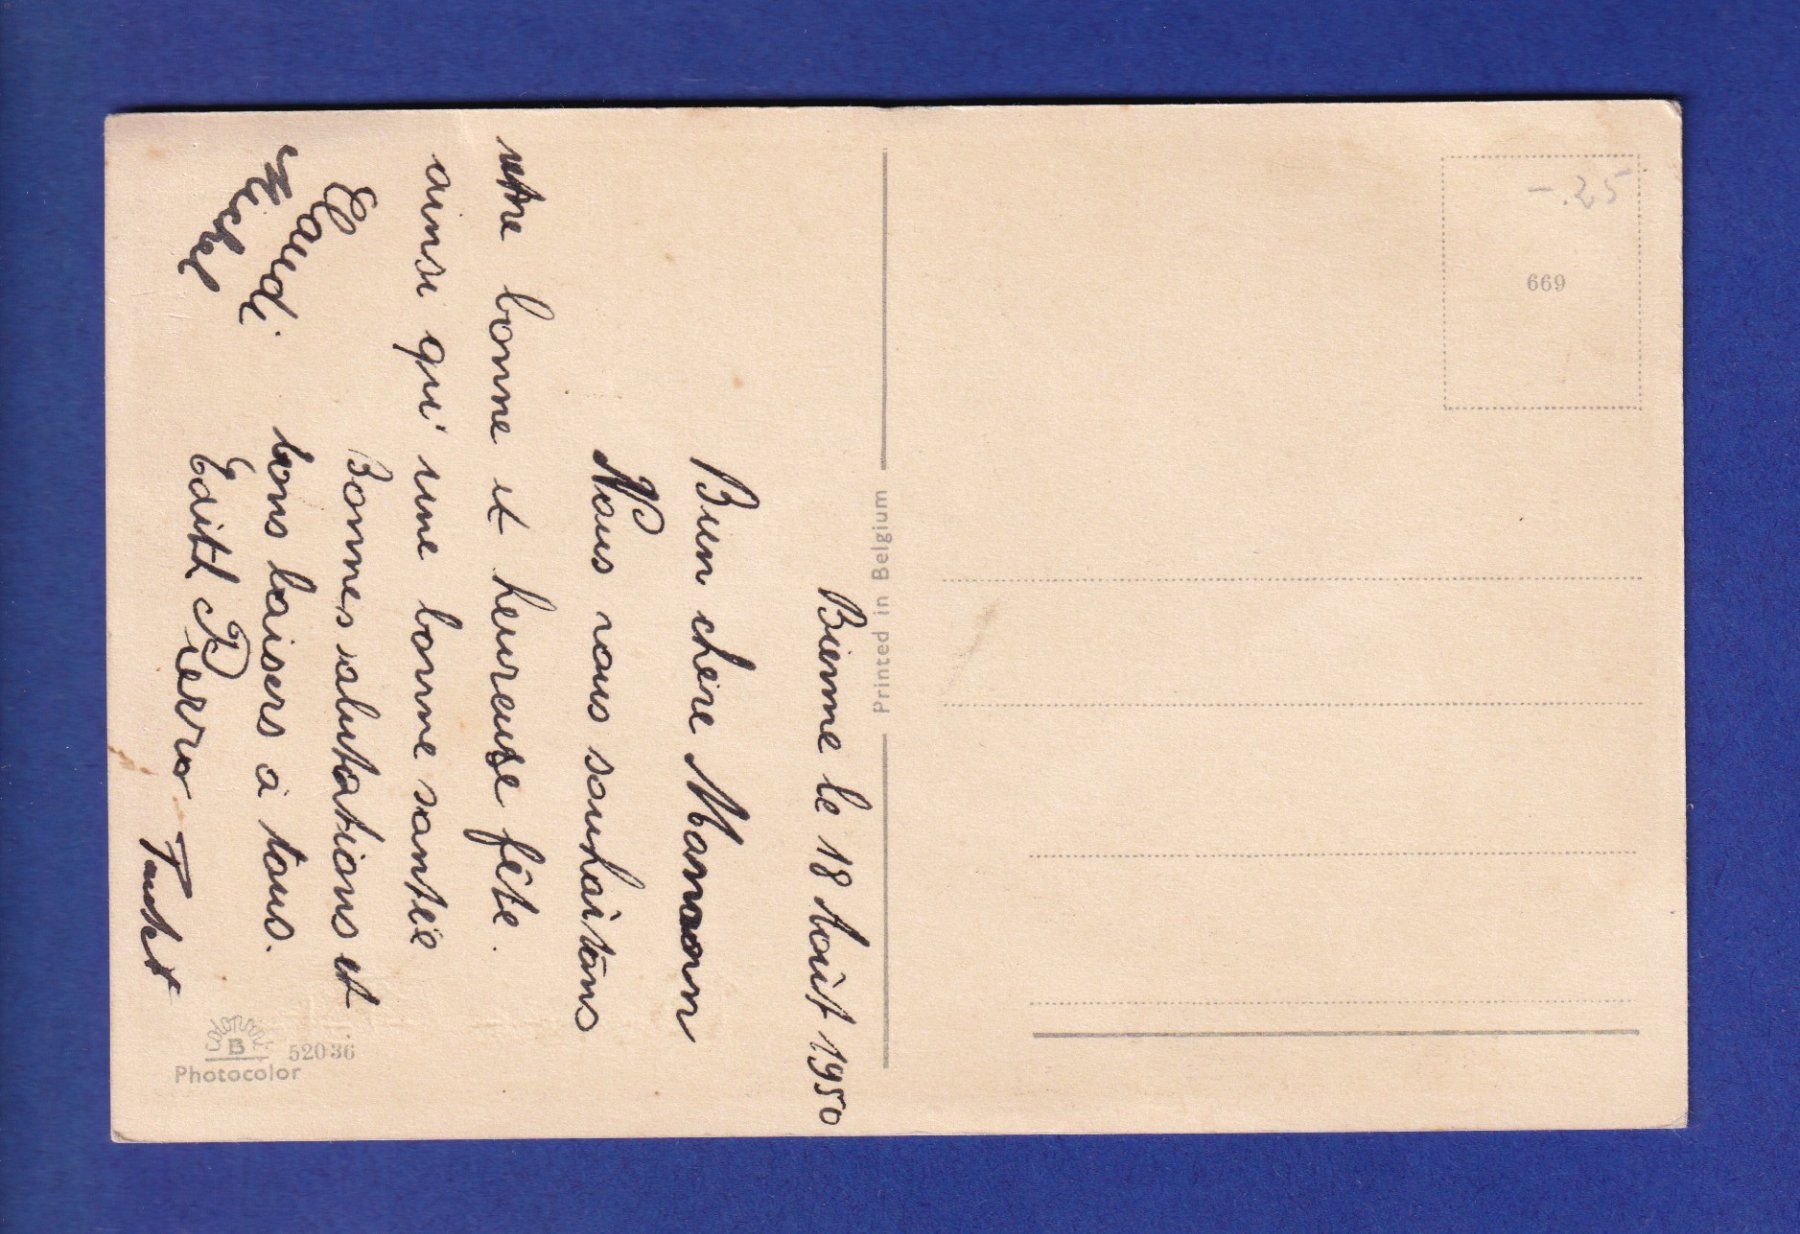 Bienne le 18 Août 1950
Bien chère Maman
Nous vous souhaitons
une bonne et heureuse fête.
ainsi qu'une bonne santée
Bonnes salutations et
bons baisers à tous.
Edith Pierro
Claudi.
Michel
Printed in Belgium
-.25
669
COLORPRINT
B
52036
Photocolor